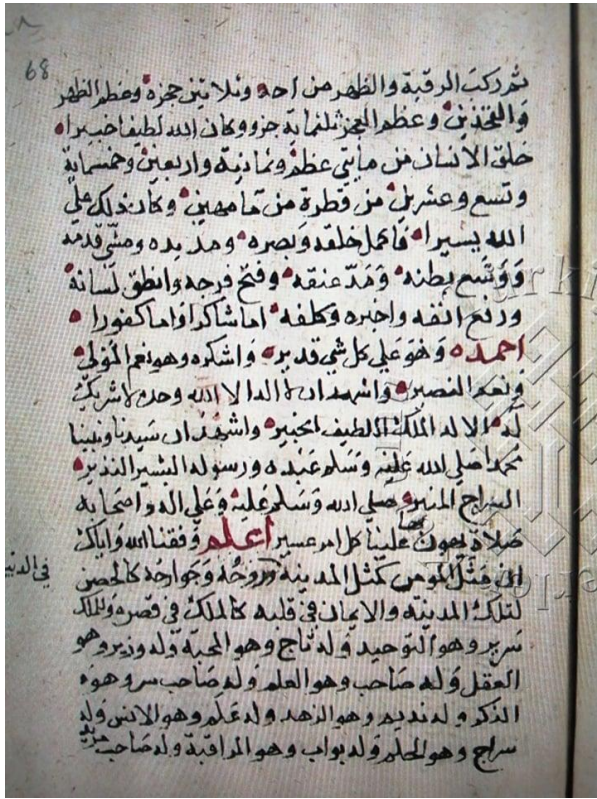 68
ثم ركب الرقبة والظهر من احد وثلاثين خرزة وعظم الظهر
والفخذين وعظم العجز ثلثماية جزو وكان الله لطيفا خبيرا
خلق الانسان من مأيتي عظم وثمانية واربعين وخمسماية
وتسع وعشرين من قطرة من ما مهين وكان ذلك علي
الله يسيرا فاكمل خلقه وبصره ومد يده ومشي قدمه
ووسع بطنه ومد عنقه وفتح فرجه وانطق لسانه
ورفع انفه واخبره وكلفه اما شاكرا واما كفورا
احمده وهو علي كل شي قدير واشكره وهو نعم المولي
ونعم النصير واشهد ان لا اله الا الله وحده لا شريك
له الاله الملك اللطيف الخبير واشهد ان سيدنا ونبينا
محمدا صلي الله عليه وسلم عبده ورسوله البشير النذير
السراج المنير صلي الله وسلم عليه وعلي اله واصحابه
صلاة يهون بها علينا كل امر عسير اعلم وفقنا الله واياك
ان مثل المومن في الدنيا كمثل المدينة وروحه وجوارحه كالحصن
لتلك المدينة والايمان في قلبه كالملك في قصره وللملك
سرير وهو التوحيد وله تاج وهو المحبة وله وزير وهو
العقل وله صاحب وهو العلم وله صاحب سر وهو
الذكر وله نديم وهو الزهد وله علم وهو الانس وله
سراج وهو الحلم وله بواب وهو المراقبة وله صاحب